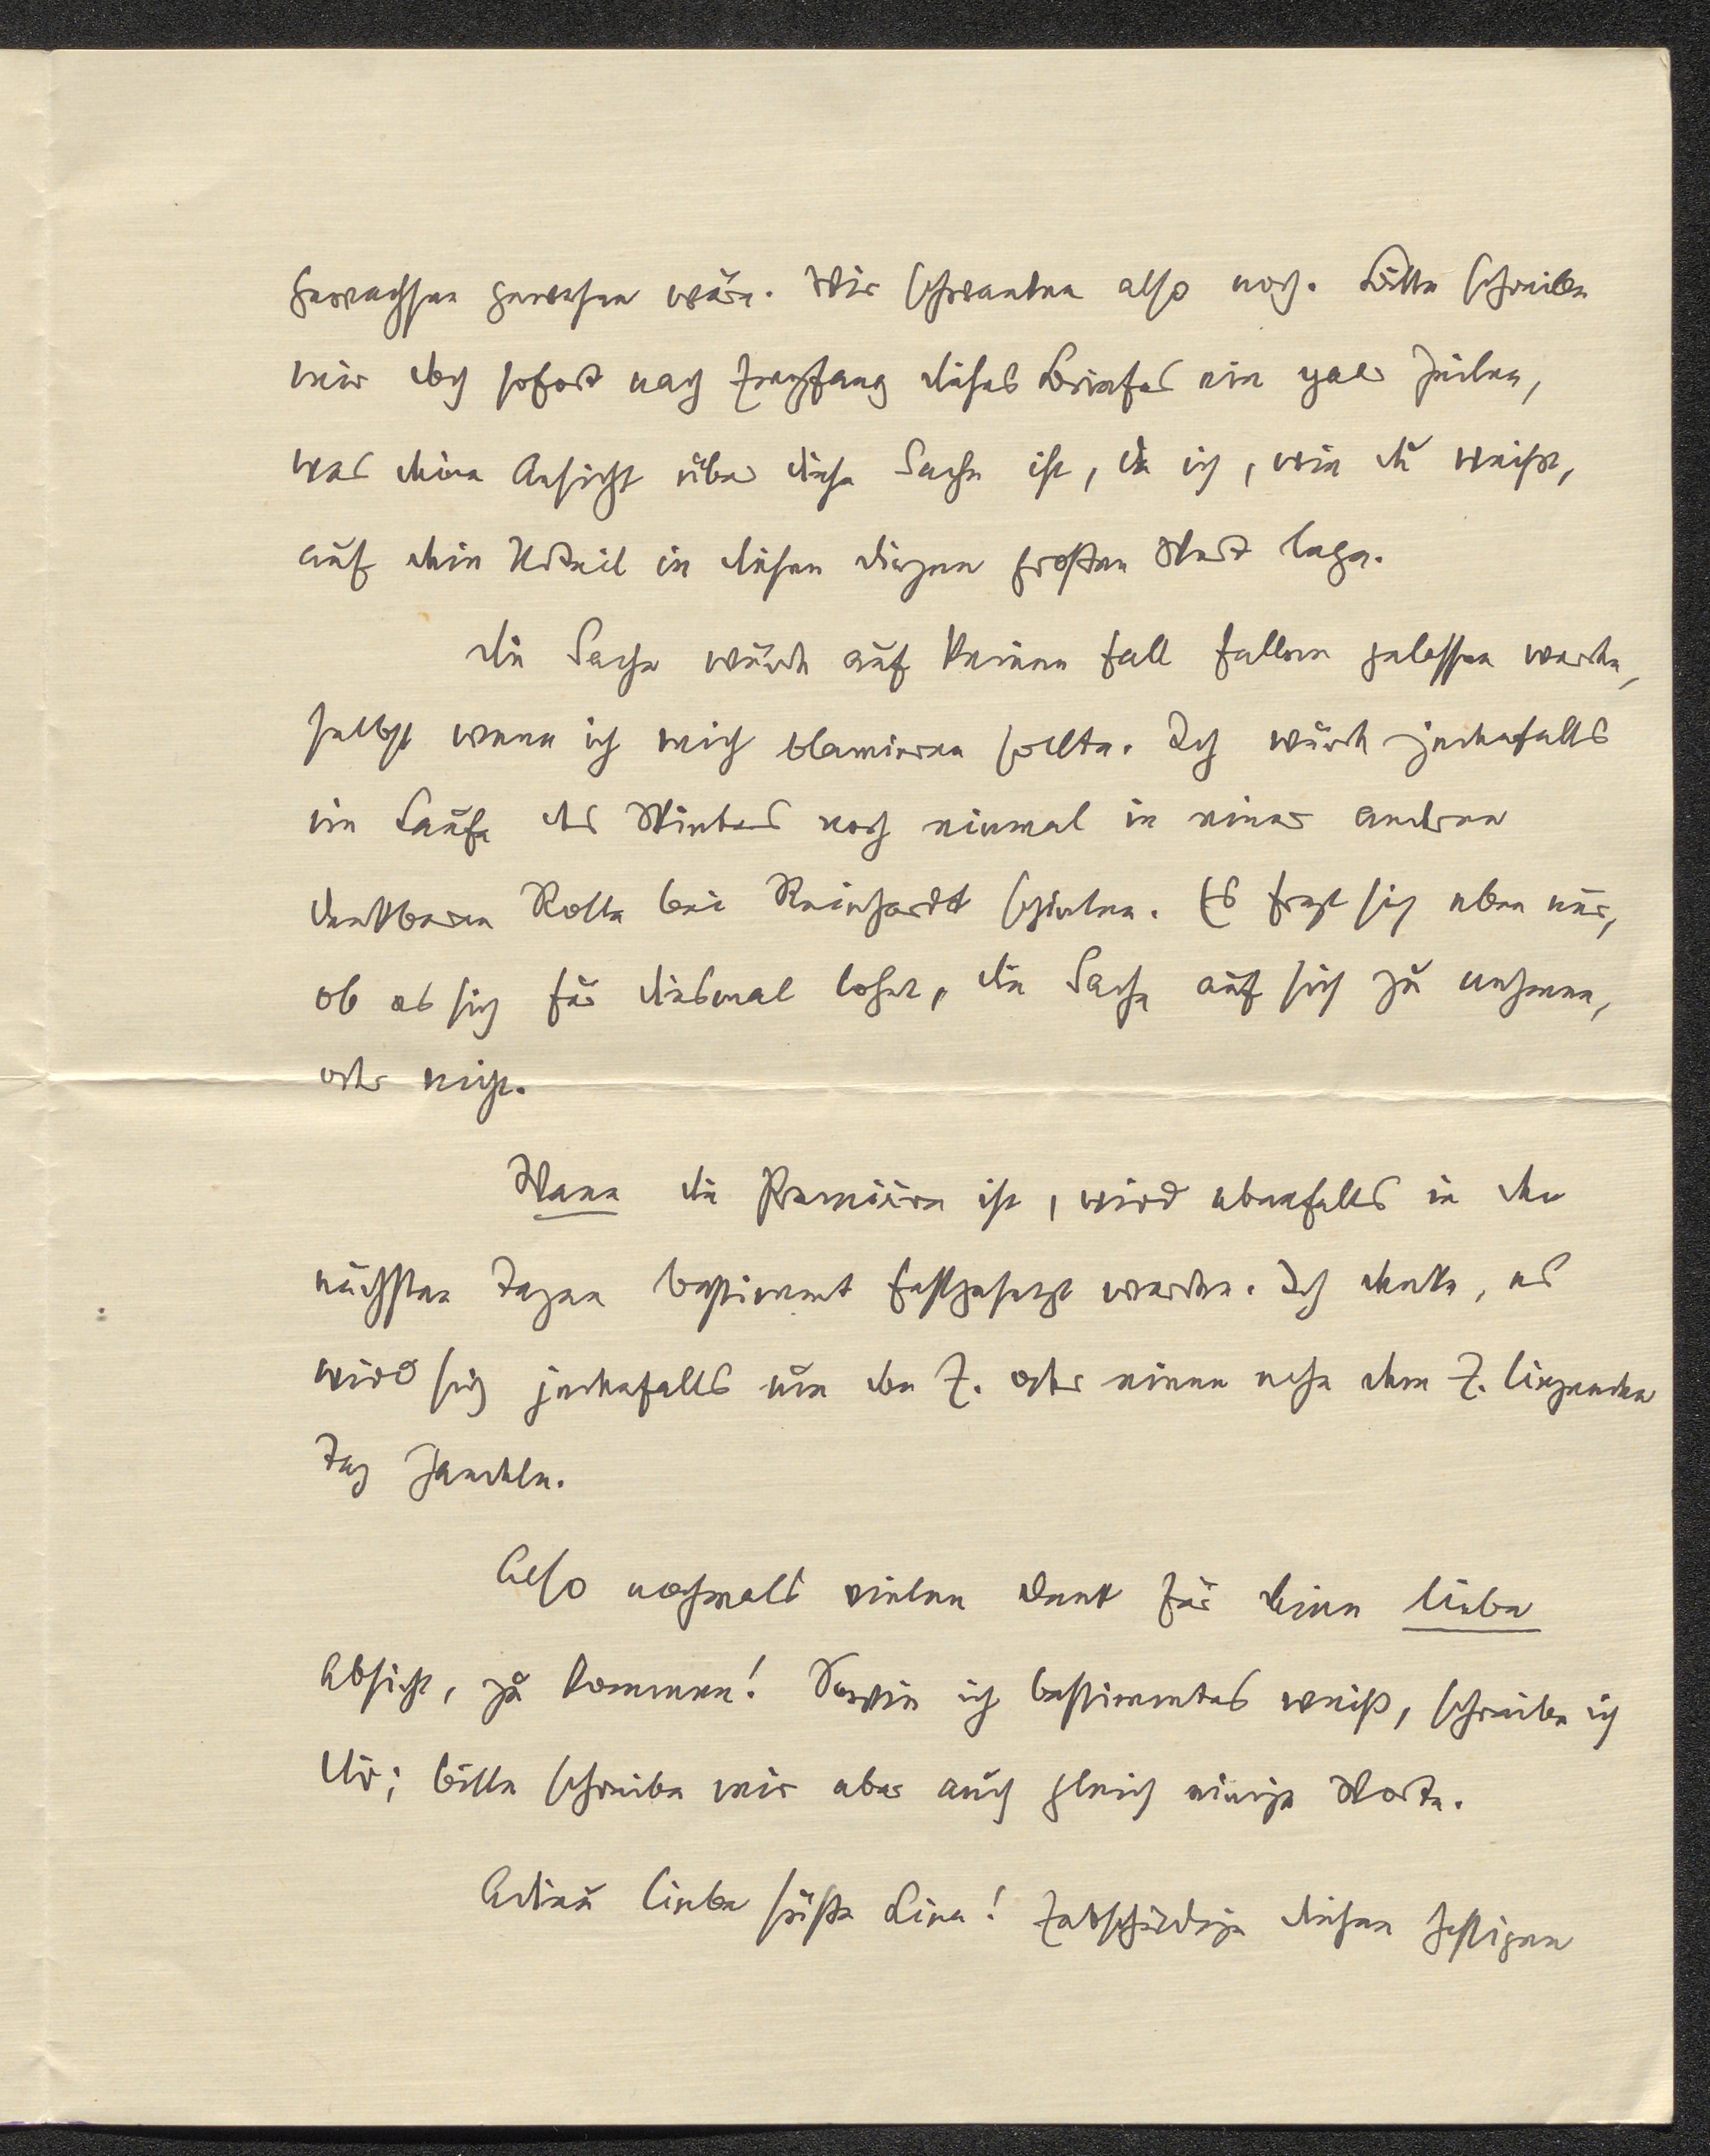 gewachsen gewesen wäre. Wir schwanken also noch. Bitte schreibe
mir doch sofort nach Empfang dieses Briefes ein paar Zeilen,
was deine Ansicht über diese Sache ist, da ich, wie du weißt,
auf dein Urteil in diesen Dingen großen Wert lege.
Die Sache würde auf keinen Fall fallen gelassen werden,
selbst wenn ich mich blamieren sollte. Ich würde jedenfalls
im Laufe des Winters noch einmal in einer anderen
dankbaren Rolle bei Reinhardt spielen. Es fragt sich eben nur,
ob es sich für diesmal lohnt, die Sache auf sich zu nehmen,
oder nicht.
Wann die Première ist, wird ebenfalls in den
nächsten Tagen bestimmt festgesetzt werden. Ich denke, es
wird sich jedenfalls um den 7. oder einen nahe dem 7. liegenden
Tag handeln.
Also nochmals vielen Dank für deine liebe
Absicht, zu kommen! Sowie ich bestimmtes weiß, schreibe ich
dir; bitte schreibe mir aber auch gleich einige Worte.
Adieu liebe süße Lina! Entschuldige diesen hastigen